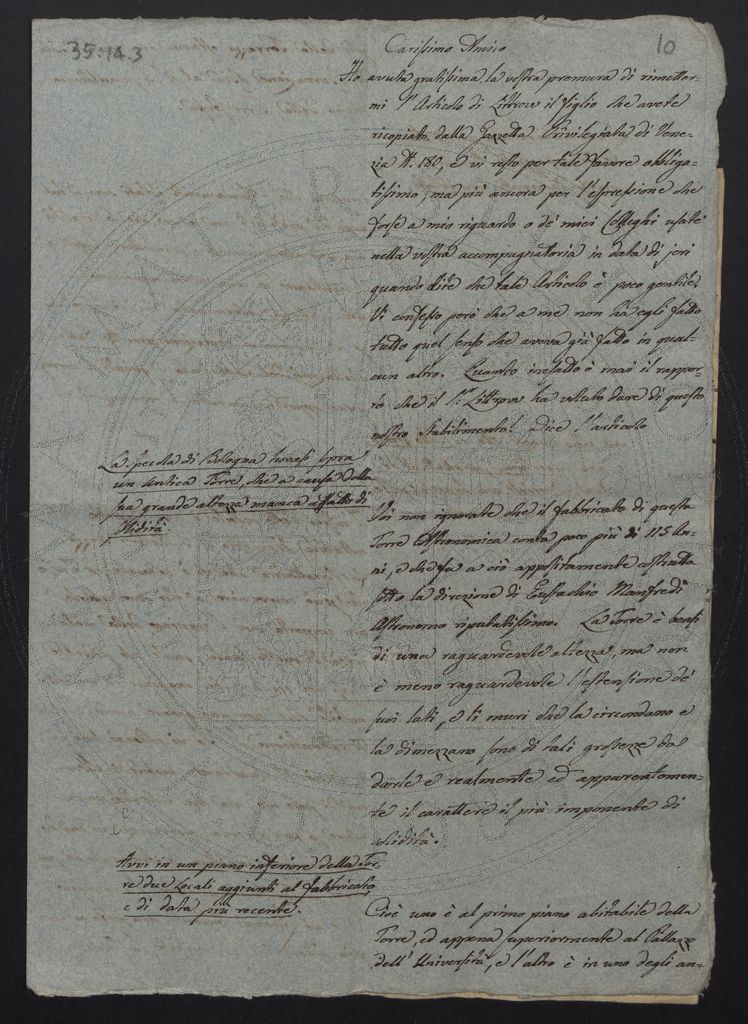 35.14.3
10
Carissimo Amico
Ho avuta gratissima la vostra premura di rimetter-
mi l'Articolo di Littrow il figlio che avete
ricopiato dalla Gazzetta Privilegiata di Vene-
zia N. 180, e vi resto per tale favore obbliga-
tissimo, ma più ancora per l'espressione che
forse a mio riguardo o de' miei Colleghi usate
nella vostra accompagnatoria in data di jeri
quando dite che tale Articolo è poco gentile.
Vi confesso però che a me non ha egli fatto
tutto quel senso che aveva già fatto in qual-
cun altro. Quanto inesatto è mai il rappor-
to che il Sr. Littrow ha voluto dare di questo
nostro Stabilimento! Dice l'articolo
La Specola di Bologna trovasi sopra
un antica Torre, che a causa della
sua grande altezza manca affatto di
Solidità
Voi non ignorate che il fabbricato di questa
Torre Astronomica conta poco più di 115 An-
ni, e che fu a ciò appositamente costrutta
sotto la direzione di Eustachio Manfredi
Astronomo riputatissimo. La Torre è bensì
di una raguardevole altezza, ma non
è meno raguardevole l'estensione de'
suoi lati, e li muri che la circondano e
la dimezzano sono di tali grossezze da
darle e realmente ed apparentemen-
te il carattere il più imponente di
solidità.
Avvi in un piano inferiore della Tor-
re due Locali aggiunti al fabbricato
e di data più recente.
Cioè uno è al primo piano abitabile della
Torre, ed appena superiormente al Palazzo
dell'Università, e l'altro è in uno degli an-